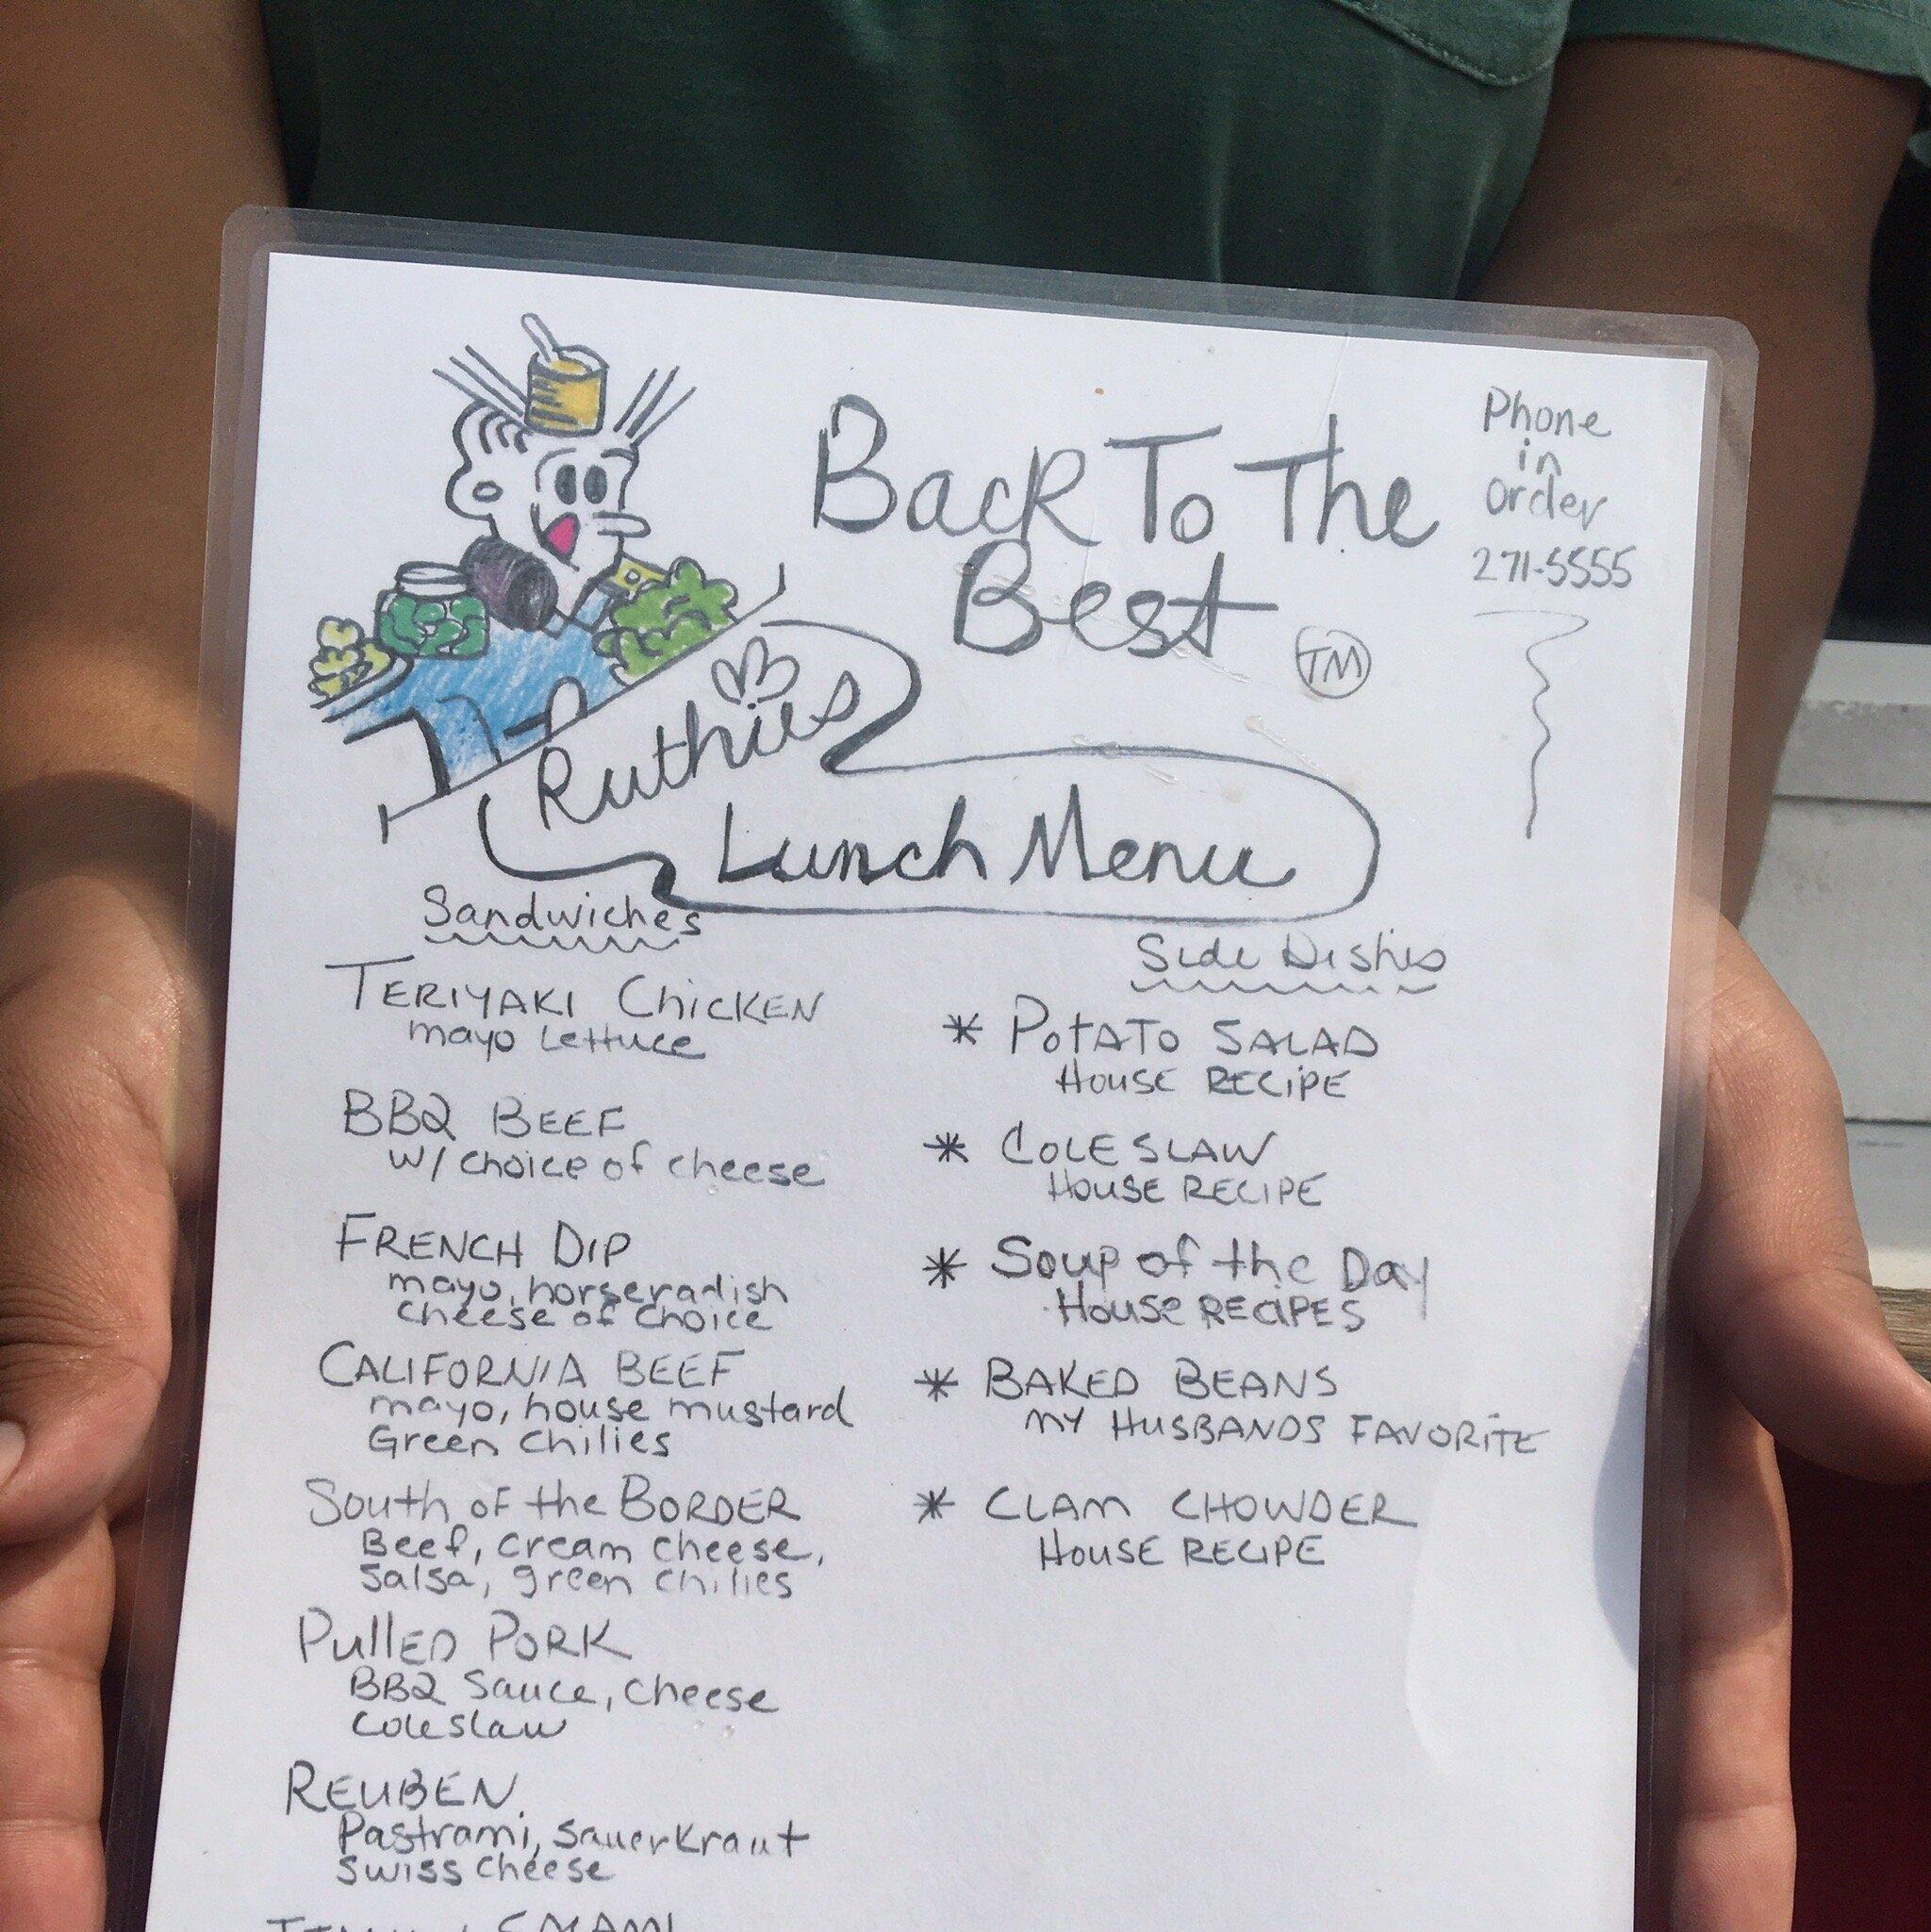 Back To The
Best
TM
Phone
in
order
271-5555
Ruthies
Lunch Menu
Sandwiches
TERIYAKI ChICKEN
mayo Lettuce
BBQ BEEF
w/ choice of cheese
FRENCH DIP
mayo, horseradish
cheese of choice
CALIFORNIA BEEF
mayo, house mustard
Green chilies
South of the BORDER
Beef, cream cheese,
salsa, green chilies
PullED PORK
BBQ Sauce, cheese
coleslaw
REUBEN
Pastrami, SauerKraut
swiss cheese
Side Dishes
* PotATO SALAD
HOUSE RECIPE
* COLESLAW
HOUSE RECIPE
* Soup of the Day
HOUSe RECIPES
* BAKED BEANS
MY HUSBANDS FAVORITE
* CLAM CHOWDER
HOUSE RECIPE